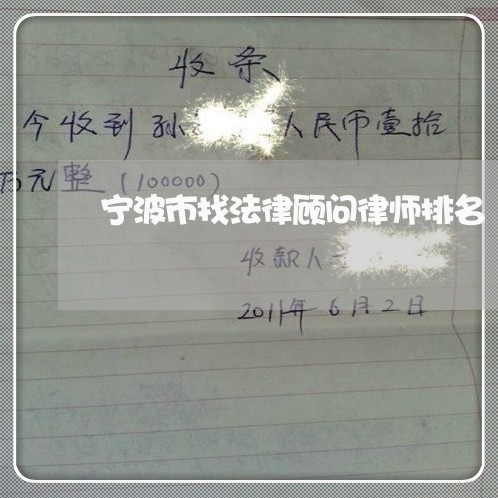 收条
今收到孙 人民币壹拾
万元整（100000）
宁波市找法律顾问律师排名
收款人
2011年6月2日